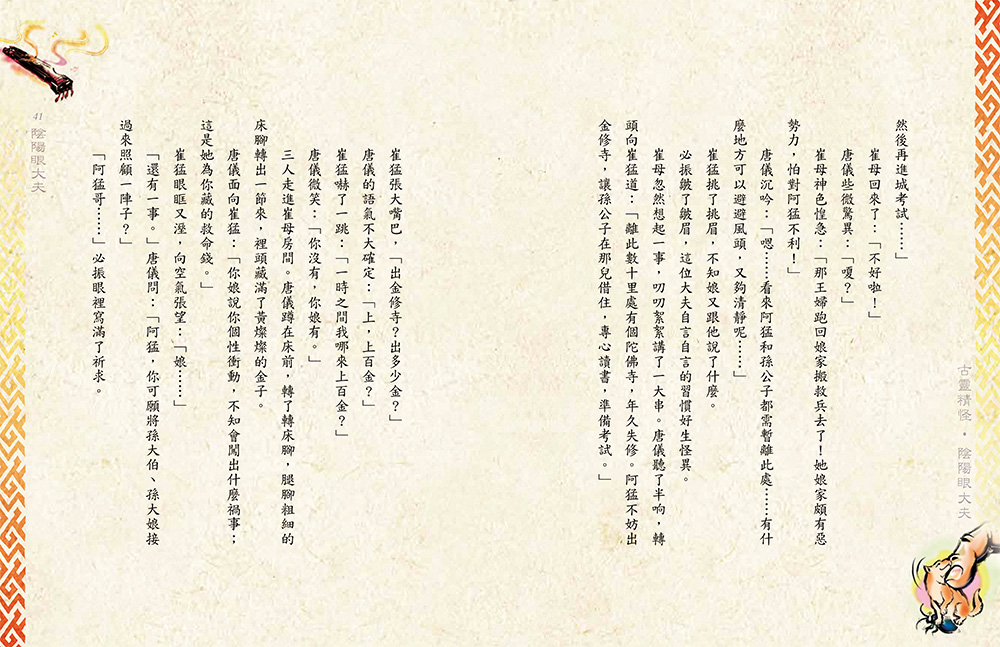 古靈精怪・陰陽眼大夫
然後再進城考試……」
崔母回來了：「不好啦！」
唐儀些微驚異：「嗄？」
崔母神色惶急：「那王婦跑回娘家搬救兵去了！她娘家頗有惡
勢力，怕對阿猛不利！」
唐儀沉吟：「嗯……看來阿猛和孫公子都需暫離此處……有什
麼地方可以避避風頭，又夠清靜呢……」
崔猛挑了挑眉，不知娘又跟他說了什麼。
必振皺了皺眉，這位大夫自言自言的習慣好生怪異。
崔母忽然想起一事，叨叨絮絮講了一大串。唐儀聽了半晌，轉
頭向崔猛道：「離此數十里處有個陀佛寺，年久失修。阿猛不妨出
金修寺，讓孫公子在那兒借住，專心讀書，準備考試。」
崔猛張大嘴巴，「出金修寺？出多少金？」
唐儀的語氣不大確定：「上，上百金？」
崔猛嚇了一跳：「一時之間我哪來上百金？」
唐儀微笑：「你沒有，你娘有。」
三人走進崔母房間。唐儀蹲在床前，轉了轉床腳，腿腳粗細的
床腳轉出一節來，裡頭藏滿了黃燦燦的金子。
唐儀面向崔猛：「你娘說你個性衝動，不知會闖出什麼禍事；
這是她為你藏的救命錢。」
崔猛眼眶又溼，向空氣張望：「娘……」
「還有一事。」唐儀問：「阿猛，你可願將孫大伯、孫大娘接
過來照顧一陣子？」
「阿猛哥……」必振眼裡寫滿了祈求。
41 陰陽眼大夫